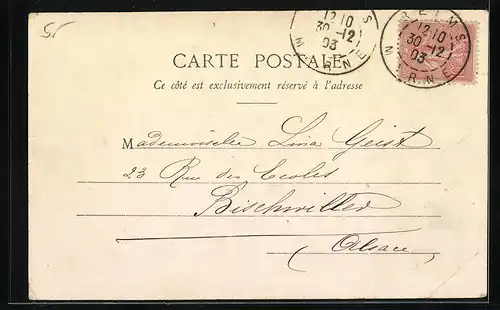 5/
REIMS
12 10
30 -12
03
MARNE
REIMS
12 10
30 -12
03
MARNE
CARTE POSTALE
Ce côté est exclusivement réservé à l'adresse
Mademoiselle Lina Geist
23 Rue des Ecoles
Bischwiller
Alsace